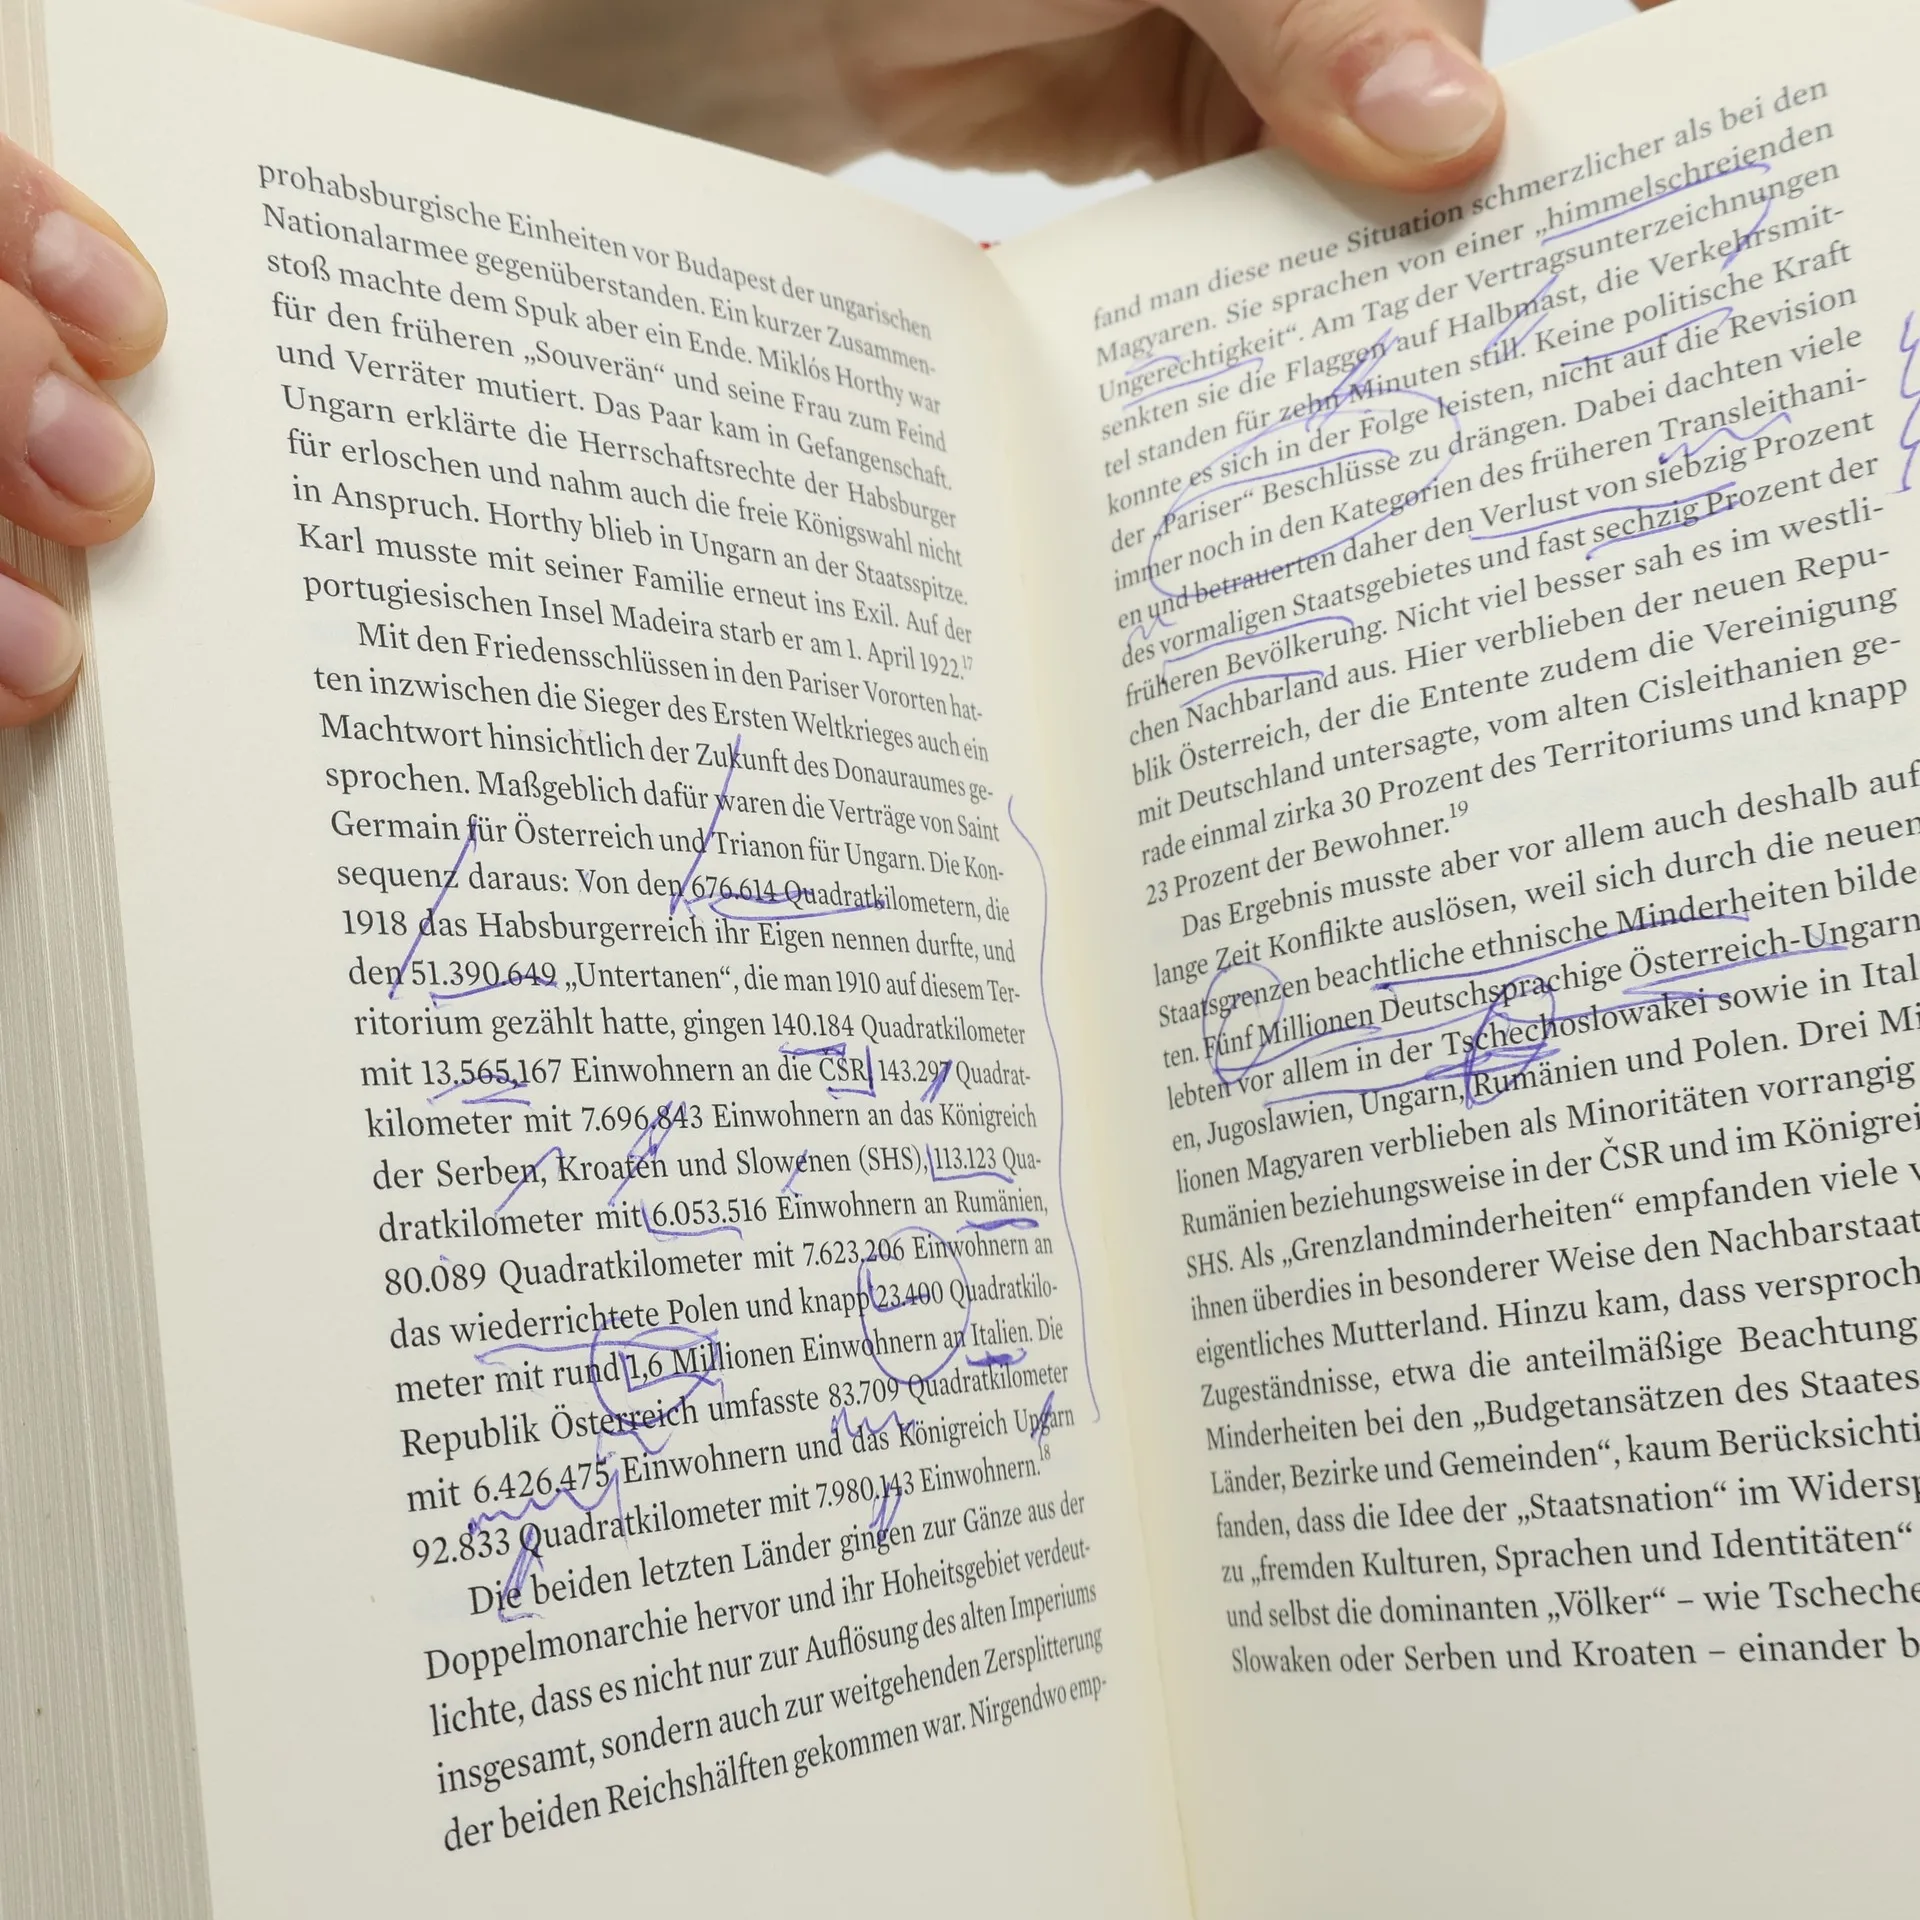 prohabsburgische Einheiten vor Budapest der ungarischen
Nationalarmee gegenüberstanden. Ein kurzer Zusammen-
stoß machte dem Spuk aber ein Ende. Miklós Horthy war
für den früheren „Souverän“ und seine Frau zum Feind
und Verräter mutiert. Das Paar kam in Gefangenschaft.
Ungarn erklärte die Herrschaftsrechte der Habsburger
für erloschen und nahm auch die freie Königswahl nicht
in Anspruch. Horthy blieb in Ungarn an der Staatsspitze.
Karl musste mit seiner Familie erneut ins Exil. Auf der
portugiesischen Insel Madeira starb er am 1. April 1922.17
Mit den Friedensschlüssen in den Pariser Vororten hat-
ten inzwischen die Sieger des Ersten Weltkrieges auch ein
Machtwort hinsichtlich der Zukunft des Donauraumes ge-
sprochen. Maßgeblich dafür waren die Verträge von Saint
Germain für Österreich und Trianon für Ungarn. Die Kon-
sequenz daraus: Von den 676.614 Quadratkilometern, die
1918 das Habsburgerreich ihr Eigen nennen durfte, und
den 51.390.649 „Untertanen“, die man 1910 auf diesem Ter-
ritorium gezählt hatte, gingen 140.184 Quadratkilometer
mit 13.565,167 Einwohnern an die ČSR, 143.297 Quadrat-
kilometer mit 7.696.843 Einwohnern an das Königreich
der Serben, Kroaten und Slowenen (SHS), 113.123 Qua-
dratkilometer mit 6.053.516 Einwohnern an Rumänien,
80.089 Quadratkilometer mit 7.623.206 Einwohnern an
das wiederrichtete Polen und knapp 23.400 Quadratkilo-
meter mit rund 1,6 Millionen Einwohnern an Italien. Die
Republik Österreich umfasste 83.709 Quadratkilometer
mit 6.426.475 Einwohnern und das Königreich Ungarn
92.833 Quadratkilometer mit 7.980.143 Einwohnern.18
Die beiden letzten Länder gingen zur Gänze aus der
Doppelmonarchie hervor und ihr Hoheitsgebiet verdeut-
lichte, dass es nicht nur zur Auflösung des alten Imperiums
insgesamt, sondern auch zur weitgehenden Zersplitterung
der beiden Reichshälften gekommen war. Nirgendwo emp-
fand man diese neue Situation schmerzlicher als bei den
Magyaren. Sie sprachen von einer „himmelschreienden
Ungerechtigkeit“. Am Tag der Vertragsunterzeichnungen
senkten sie die Flaggen auf Halbmast, die Verkehrsmit-
tel standen für zehn Minuten still. Keine politische Kraft
konnte es sich in der Folge leisten, nicht auf die Revision
der „Pariser“ Beschlüsse zu drängen. Dabei dachten viele
immer noch in den Kategorien des früheren Transleithani-
en und betrauerten daher den Verlust von siebzig Prozent
des vormaligen Staatsgebietes und fast sechzig Prozent der
früheren Bevölkerung. Nicht viel besser sah es im westli-
chen Nachbarland aus. Hier verblieben der neuen Repu-
blik Österreich, der die Entente zudem die Vereinigung
mit Deutschland untersagte, vom alten Cisleithanien ge-
rade einmal zirka 30 Prozent des Territoriums und knapp
23 Prozent der Bewohner.19
Das Ergebnis musste aber vor allem auch deshalb auf
lange Zeit Konflikte auslösen, weil sich durch die neuen
Staatsgrenzen beachtliche ethnische Minderheiten bilde
ten. Fünf Millionen Deutschsprachige Österreich-Ungarn
lebten vor allem in der Tschechoslowakei sowie in Ital
en, Jugoslawien, Ungarn, Rumänien und Polen. Drei Mi
lionen Magyaren verblieben als Minoritäten vorrangig
Rumänien beziehungsweise in der ČSR und im Königrei
SHS. Als „Grenzlandminderheiten“ empfanden viele v
ihnen überdies in besonderer Weise den Nachbarstaat
eigentliches Mutterland. Hinzu kam, dass versproch
Zugeständnisse, etwa die anteilmäßige Beachtung
Minderheiten bei den „Budgetansätzen des Staates
Länder, Bezirke und Gemeinden“, kaum Berücksichti
fanden, dass die Idee der „Staatsnation“ im Widersp
zu „fremden Kulturen, Sprachen und Identitäten“
und selbst die dominanten „Völker“ – wie Tscheche
Slowaken oder Serben und Kroaten – einander b